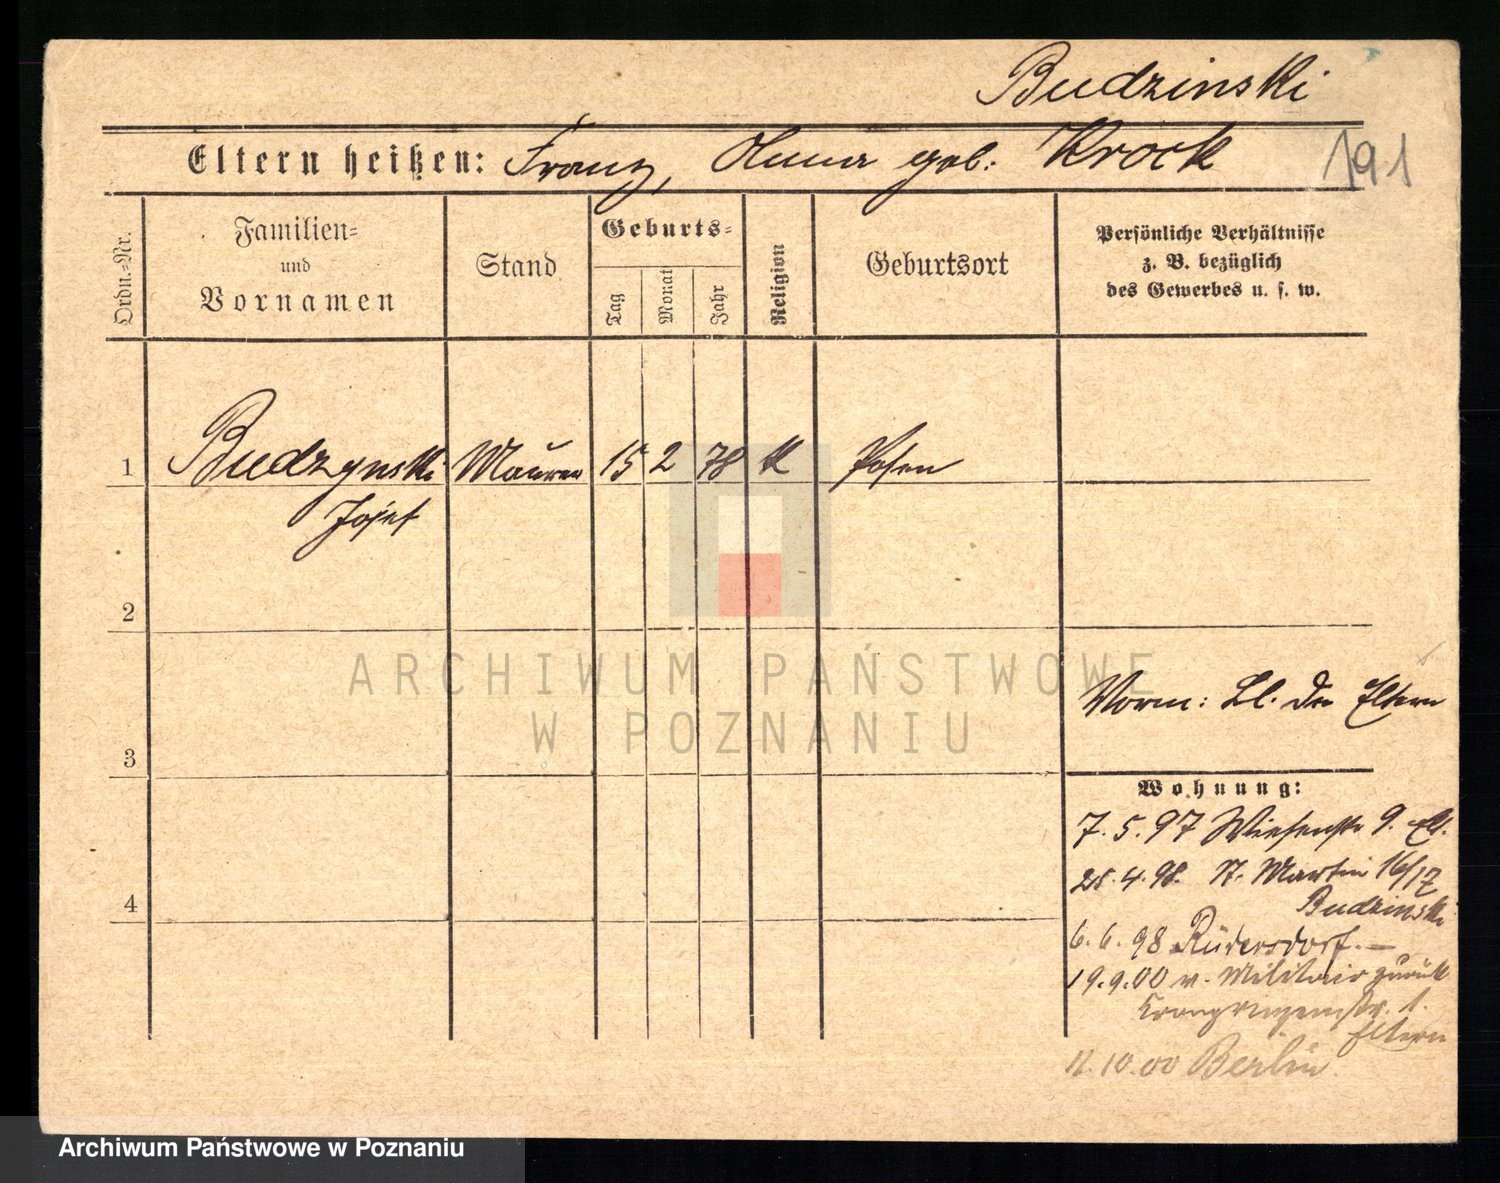 Budzinski
Eltern heißen: Franz, Anna geb: Krock
191
Ordn.-Nr.
Familien-
und
Vornamen
Stand
Geburts-
Tag
Monat
Jahr
Religion
Geburtsort
Persönliche Verhältnisse
z. B. bezüglich
des Gewerbes u. s. w.
1 Budzynski Maurer 15 2 78 K Posen
Josef
2
3
4
Vorm: Bl. der Eltern
Wohnung:
7.5.97 Wiesenstr 9. El.
28.4.98. St. Martin 16/17
Budzinski
6.6.98 Rüdersdorf. —
19.9.00 v. Militair zurück
Kronprinzenstr. 1.
Eltern
11.10.00 Berlin.
ARCHIWUM PAŃSTWOWE
W POZNANIU
Archiwum Państwowe w Poznaniu